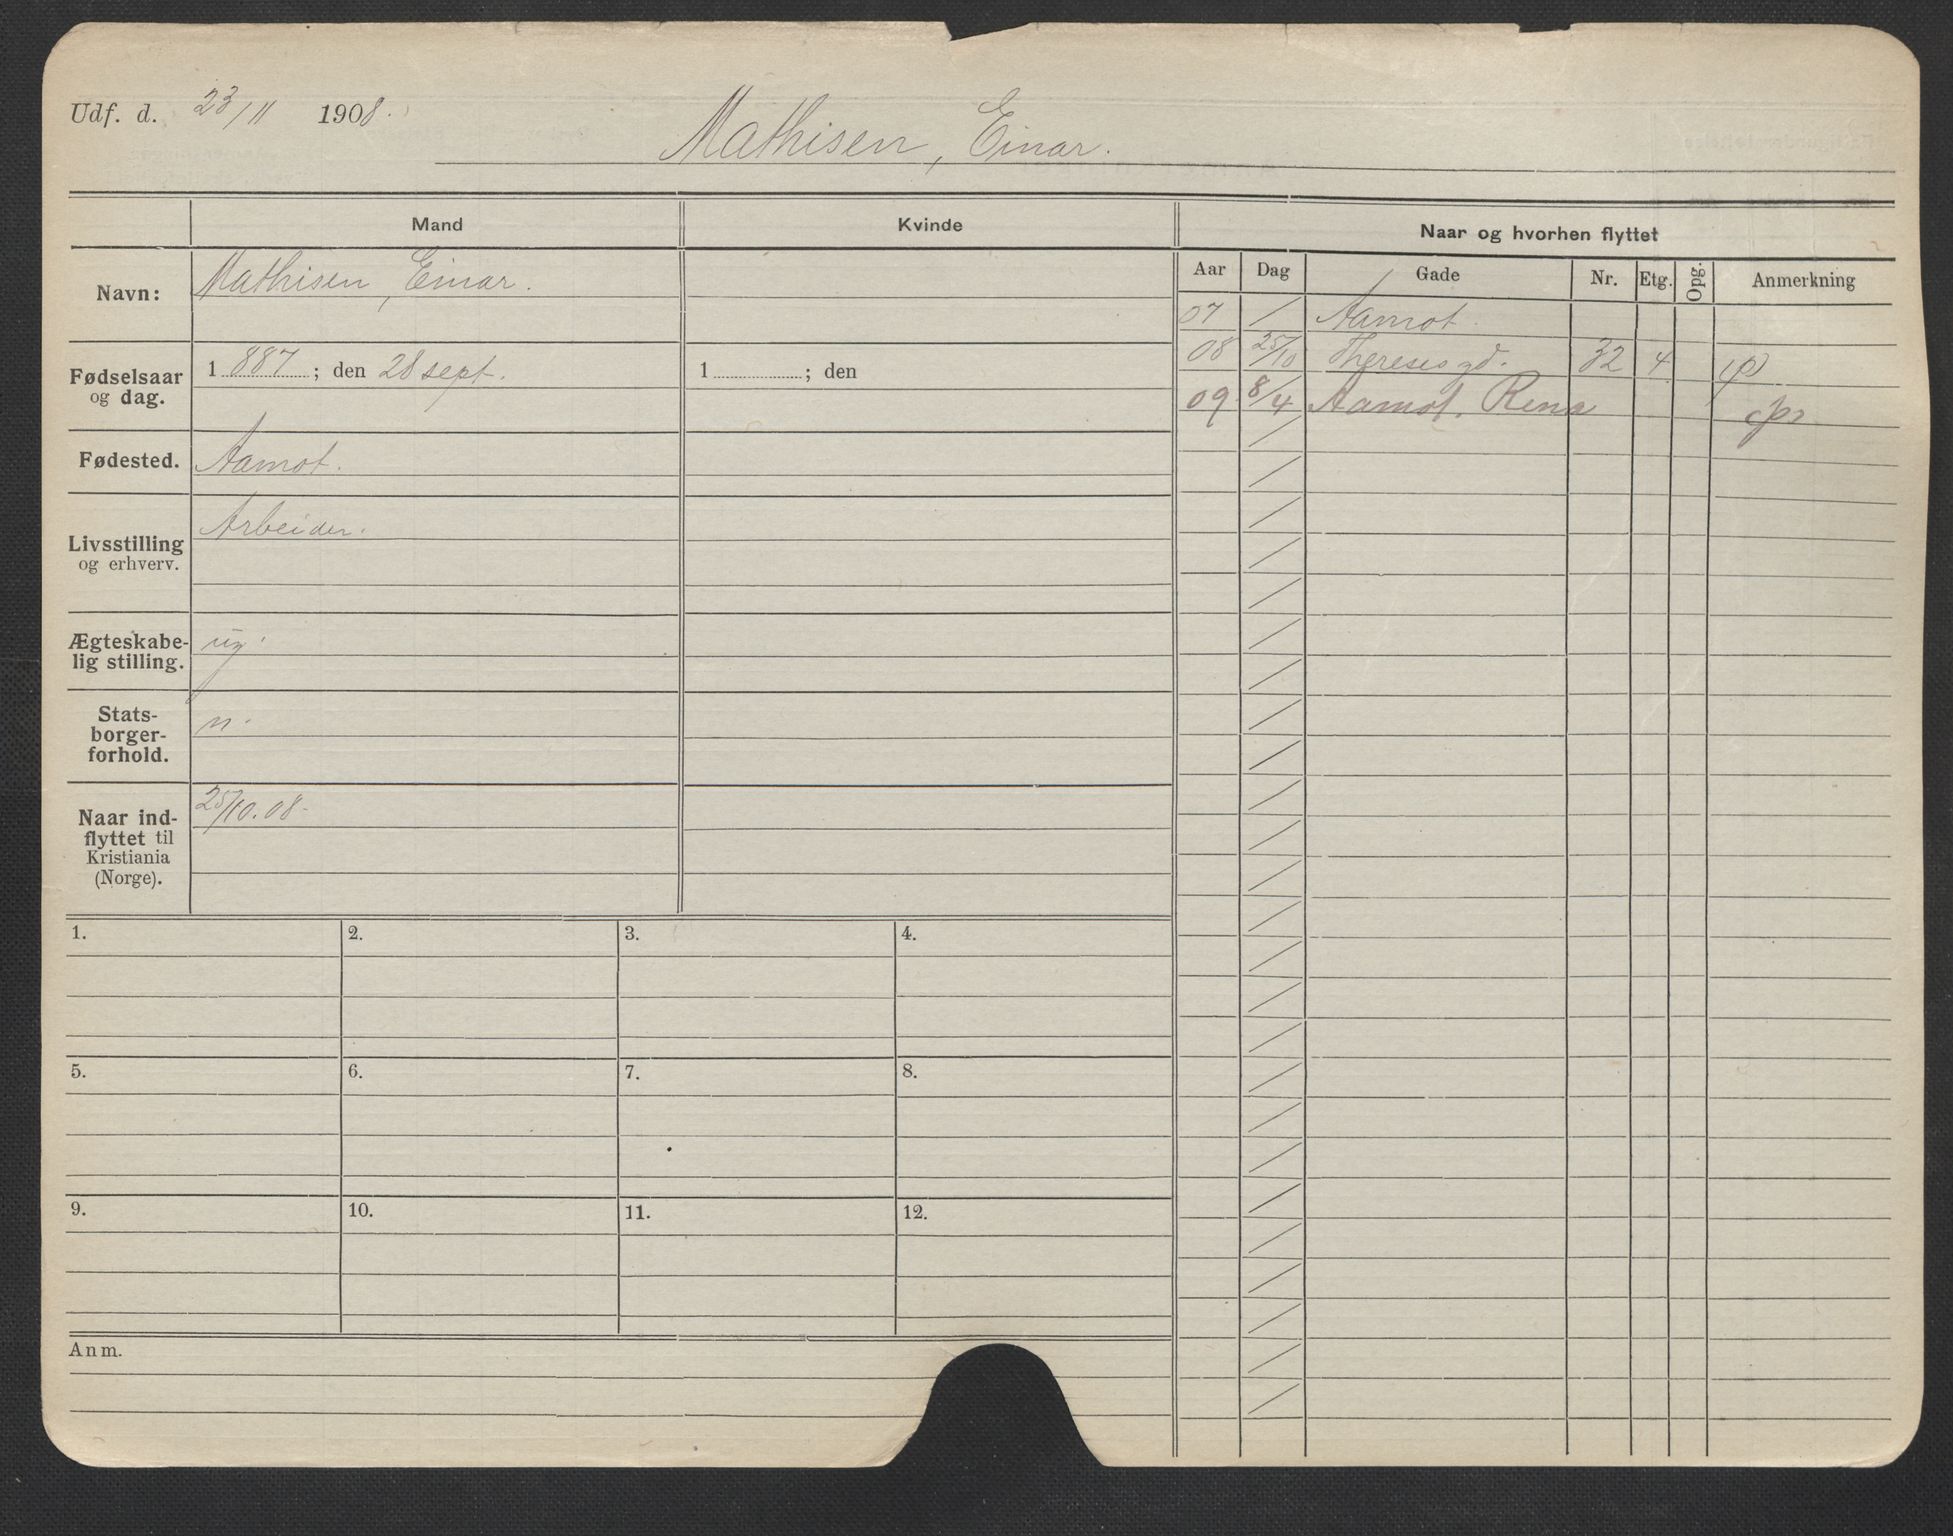 Udf. d. 23/11 1908.
Mathisen, Einar.
Mand Kvinde Naar og hvorhen flyttet
Aar Dag Gade Nr. Etg. Opg. Anmerkning
Navn: Mathisen, Einar.
Fødselsaar og dag. 1887; den 28 sept. 1 ; den
Fødested. Aamot.
Livsstilling og erhverv. Arbeider.
Ægteskabe-
lig stilling. ug.
Stats-
borger-
forhold. n.
Naar ind-
flyttet til
Kristiania
(Norge). 25/10.08.
07 / Aamot.
08 25/10 Theresesgd. 32 4
09 8/4 Aamot. Rena
1. 2. 3. 4.
5. 6. 7. 8.
9. 10. 11. 12.
Anm.